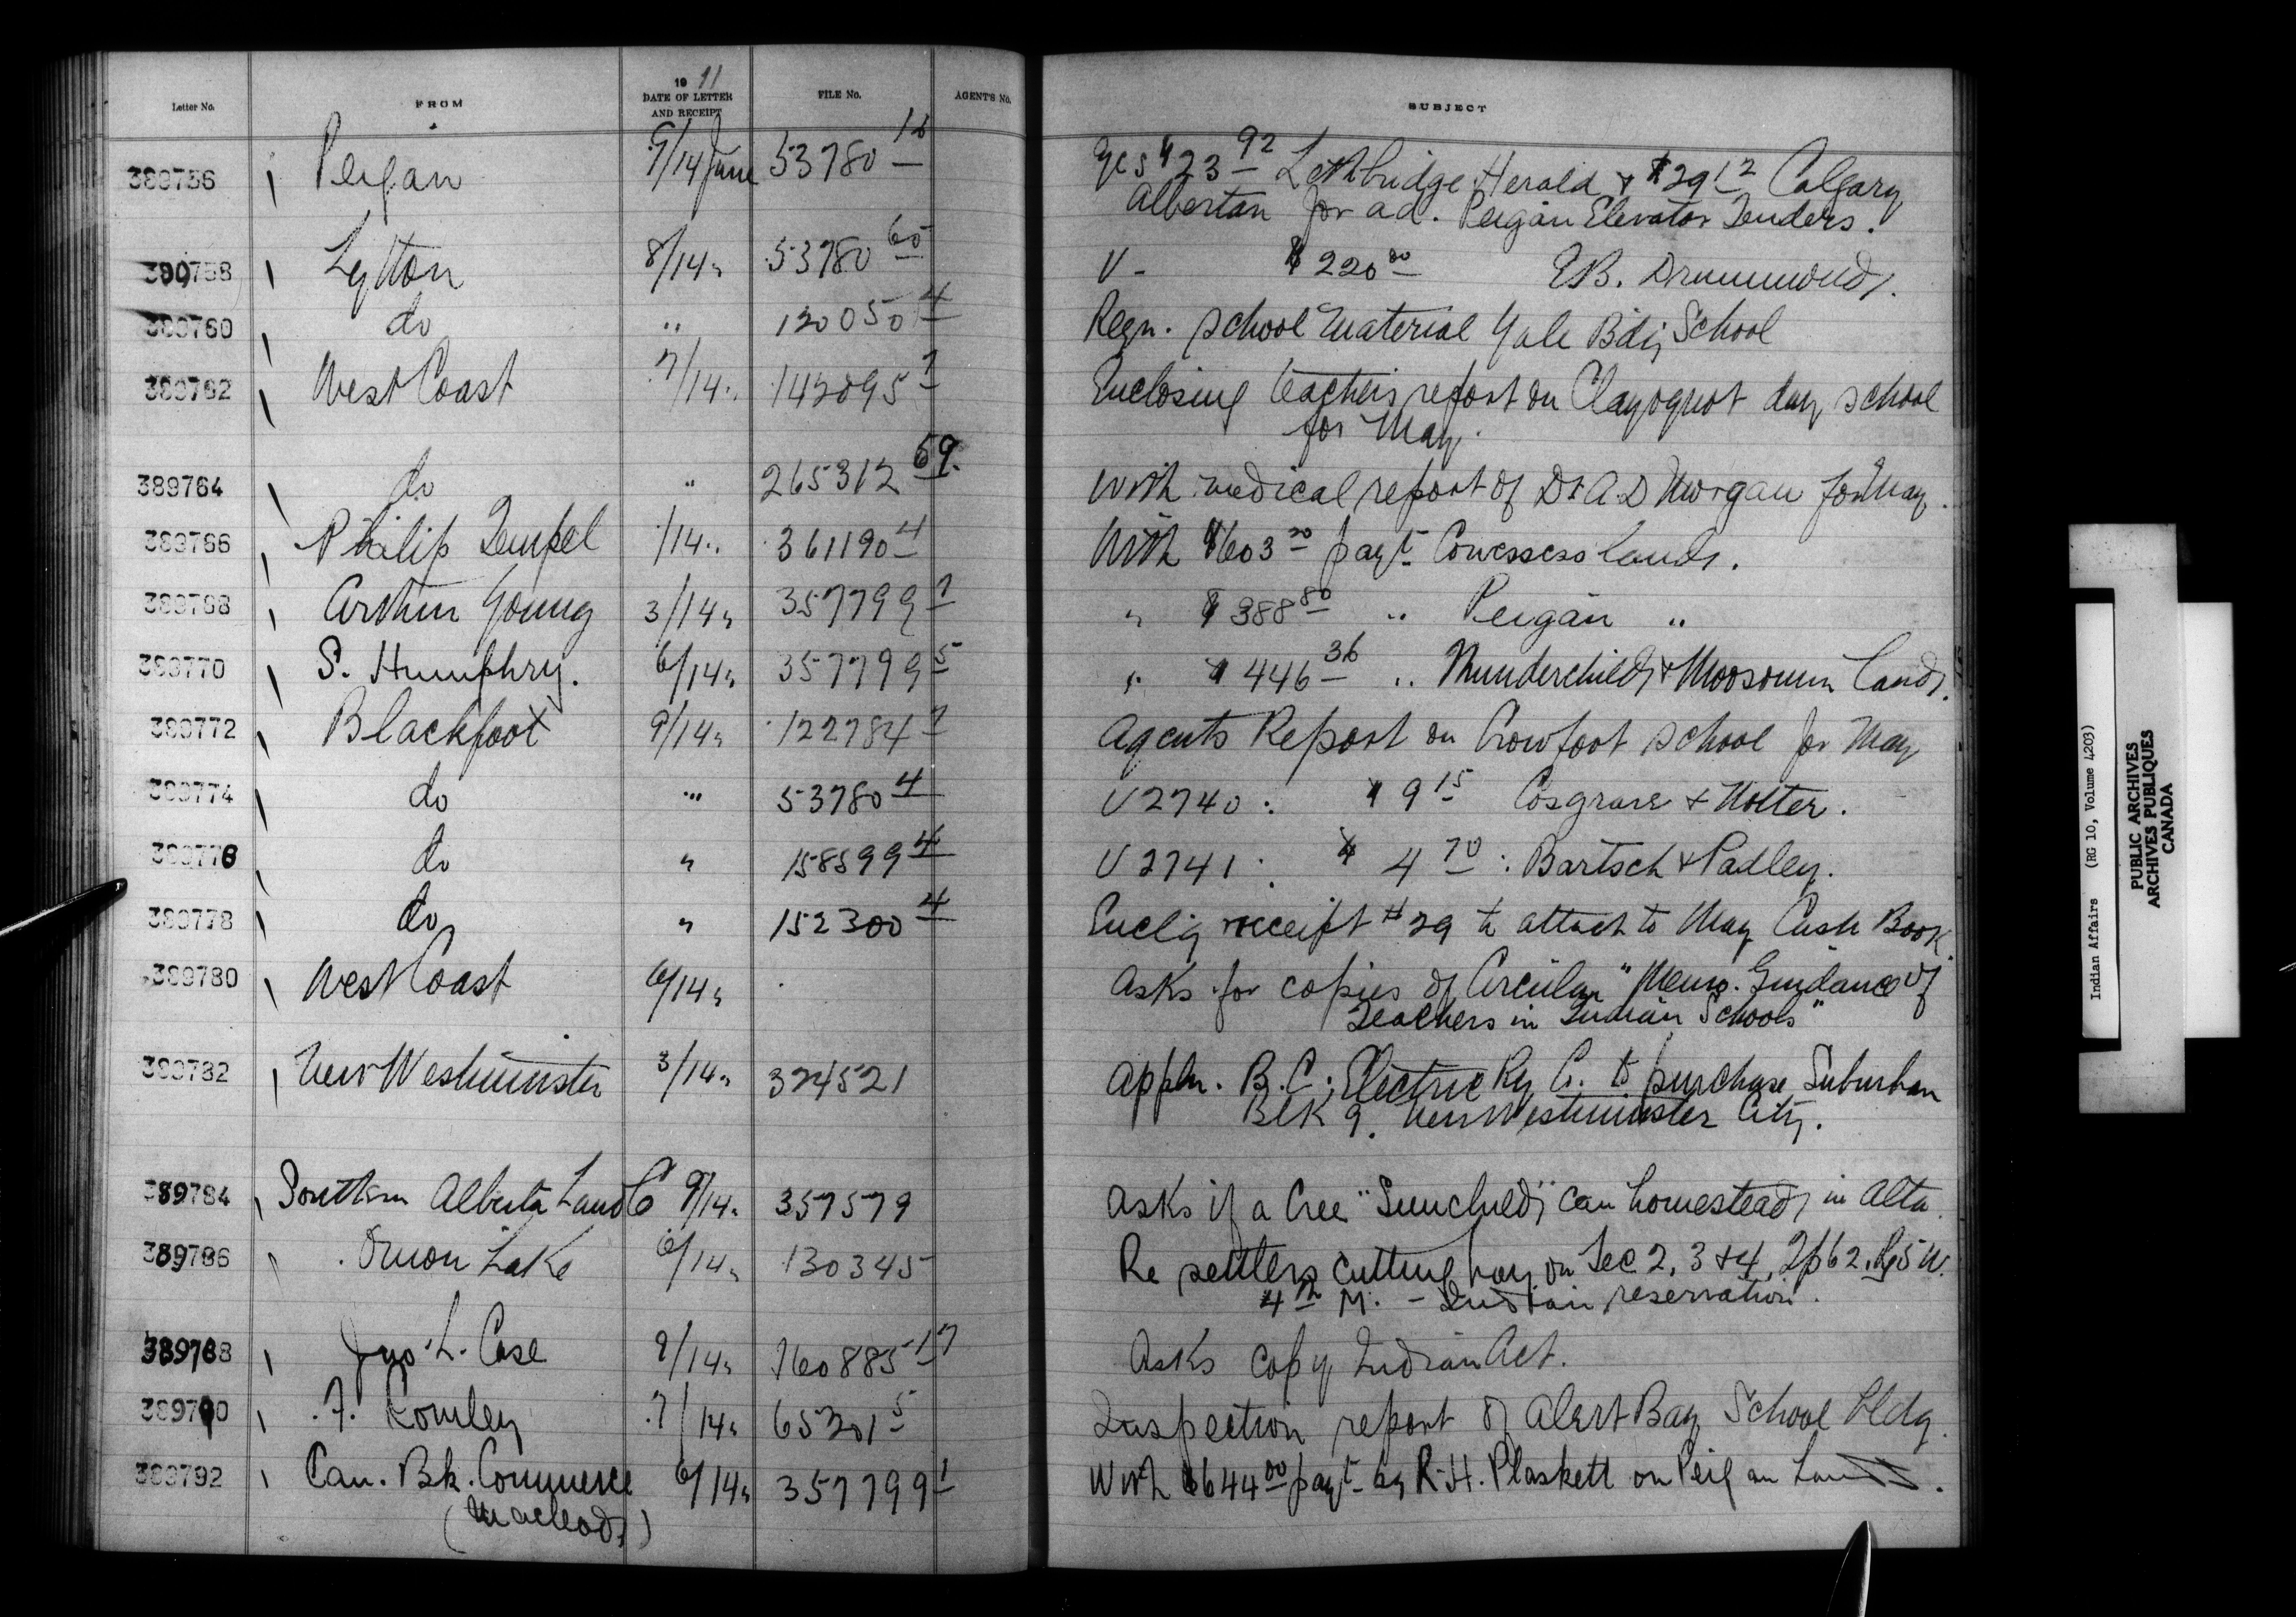 Letter No. FROM 19 11 DATE OF LETTER AND RECEIPT FILE No. AGENTS No. SUBJECT
389756 Peigan 9/14 June 53780 16 Ycs $23 92 Lethbridge Herald & $29 12 Calgary
Albertan for ad. Peigan Elevator Tenders.
389758 Lytton 8/14 " 53780 65 V - $220 00 E.B. Drummond,.
389760 do " 120050 4 Reqn. school material Yale Bdg School
389762 West Coast 7/14 " 142095 7 Enclosing teachers report on Clayoquot day school
for May.
389764 do " 265312 59. With medical report of Dr A.D Morgan for May.
389766 Philip Tempel /14 " 361190 4 With $603 20 payt. Cowessess lands.
389768 Arthur Young 3/14 " 357799 7 " $388 80 " Peigan "
389770 S. Humphry. 6/14 " 357799 5 " $446 36 " Thunderchild & Moosomin Lands.
389772 Blackfoot 9/14 " 122784 7 Agents Report on Crowfoot school for May
389774 do " 53780 4 V 2740 : $9 15 Cosgrave & Wolter.
389776 do " 158599 4 V 2741 : $4 70 : Bartsch & Padley.
389778 do " 152300 4 Enclg receipt #29 to attach to May Cash Book
389780 West Coast 6/14 " Asks for copies of Circular "Memo. Guidance of
Teachers in Indian Schools"
389782 New Westminster 3/14 " 324521 Appln. B.C. Electric Ry Co. to purchase Suburban
Blk 9. New Westminster City.
389784 Southern Alberta Land Co 9/14 " 357579 Asks if a Cree "Sunchild" can homestead, in Alta.
389786 Onion Lake 6/14 " 130345 Re settlers cutting hay on Sec 2, 3 & 4, Tp 62, Rg 5 W.
4th M. - Indian reservation.
389788 Jno. L. Case 9/14 " 160885 17 Asks copy Indian Act.
389790 F. Rowley 7/14 " 65301 5 Inspection report of Alert Bay School bldg.
389792 Can. Bk. Commerce 6/14 " 357799 1 With $644 00 payt by R.H. Plaskett on Peigan Lands.
(Macleod,)
Indian Affairs (RG 10, Volume 4203)
PUBLIC ARCHIVES
ARCHIVES PUBLIQUES
CANADA